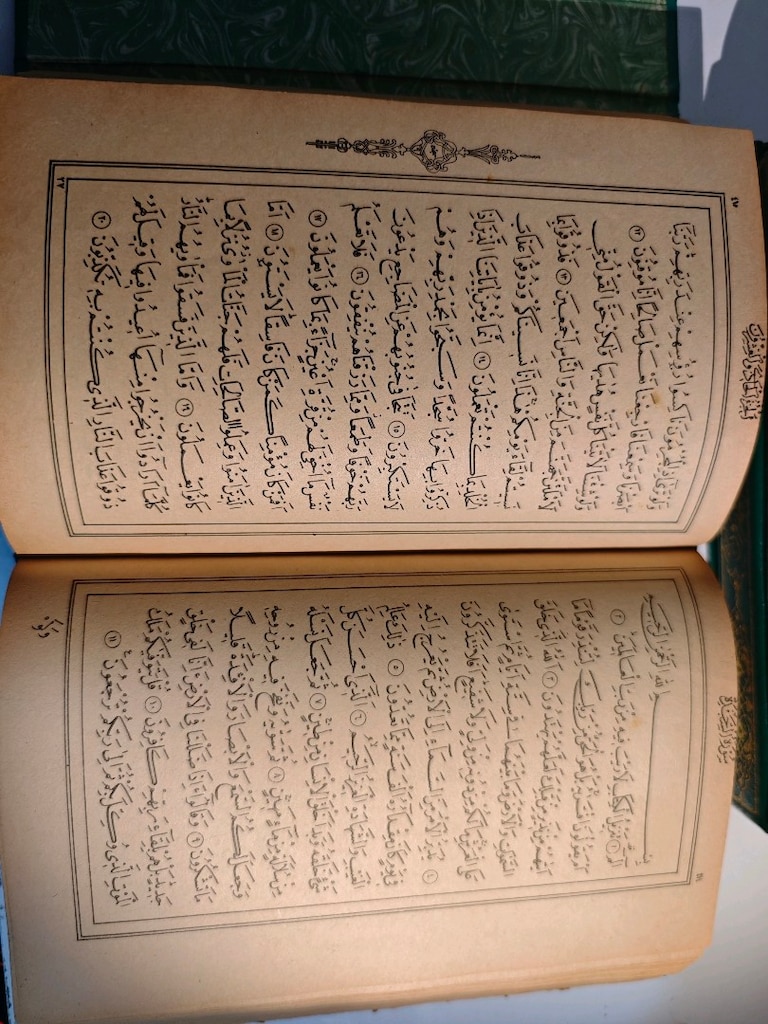 سُورَةُ السَّجْدَةِ
بِسْمِ اللهِ الرَّحْمٰنِ الرَّحِيمِ
الٓمٓ ١ تَنْزِيلُ الْكِتَابِ لَا رَيْبَ فِيهِ مِنْ رَبِّ الْعَالَمِينَ ٢
اَمْ يَقُولُونَ افْتَرٰيهُ بَلْ هُوَ الْحَقُّ مِنْ رَبِّكَ لِتُنْذِرَ قَوْمًا مَا
اَتٰيهُمْ مِنْ نَذِيرٍ مِنْ قَبْلِكَ لَعَلَّهُمْ يَهْتَدُونَ ٣ اَللهُ الَّذِي خَلَقَ
السَّمٰوَاتِ وَالْاَرْضَ وَمَا بَيْنَهُمَا فِي سِتَّةِ اَيَّامٍ ثُمَّ اسْتَوٰى
عَلَى الْعَرْشِ مَا لَكُمْ مِنْ دُونِهِ مِنْ وَلِيٍّ وَلَا شَفِيعٍ اَفَلَا تَتَذَكَّرُونَ
٤ يُدَبِّرُ الْاَمْرَ مِنَ السَّمَاءِ اِلَى الْاَرْضِ ثُمَّ يَعْرُجُ اِلَيْهِ
فِي يَوْمٍ كَانَ مِقْدَارُهُ اَلْفَ سَنَةٍ مِمَّا تَعُدُّونَ ٥ ذٰلِكَ عَالِمُ
الْغَيْبِ وَالشَّهَادَةِ الْعَزِيزُ الرَّحِيمُ ٦ اَلَّذِي اَحْسَنَ كُلَّ
شَيْءٍ خَلَقَهُ وَبَدَاَ خَلْقَ الْاِنْسَانِ مِنْ طِينٍ ٧ ثُمَّ جَعَلَ نَسْلَهُ
مِنْ سُلَالَةٍ مِنْ مَاءٍ مَهِينٍ ٨ ثُمَّ سَوّٰيهُ وَنَفَخَ فِيهِ مِنْ رُوحِهِ
وَجَعَلَ لَكُمُ السَّمْعَ وَالْاَبْصَارَ وَالْاَفْئِدَةَ قَلِيلًا
مَا تَشْكُرُونَ ٩ وَقَالُوا ءَاِذَا ضَلَلْنَا فِي الْاَرْضِ ءَاِنَّا لَفِي خَلْقٍ
جَدِيدٍ بَلْ هُمْ بِلِقَاءِ رَبِّهِمْ كَافِرُونَ ١٠ قُلْ يَتَوَفّٰيكُمْ مَلَكُ
الْمَوْتِ الَّذِي وُكِّلَ بِكُمْ ثُمَّ اِلٰى رَبِّكُمْ تُرْجَعُونَ ١١
اَلْجُزْءُ الْحَادِي وَالْعِشْرُونَ
وَلَوْ تَرٰى اِذِ الْمُجْرِمُونَ نَاكِسُوا رُؤُسِهِمْ عِنْدَ رَبِّهِمْ رَبَّنَا
اَبْصَرْنَا وَسَمِعْنَا فَارْجِعْنَا نَعْمَلْ صَالِحًا اِنَّا مُوقِنُونَ ١٢
وَلَوْ شِئْنَا لَاٰتَيْنَا كُلَّ نَفْسٍ هُدٰيهَا وَلٰكِنْ حَقَّ الْقَوْلُ مِنِّي
لَاَمْلَـَٔنَّ جَهَنَّمَ مِنَ الْجِنَّةِ وَالنَّاسِ اَجْمَعِينَ ١٣ فَذُوقُوا بِمَا
نَسِيتُمْ لِقَاءَ يَوْمِكُمْ هٰذَا اِنَّا نَسِينَاكُمْ وَذُوقُوا عَذَابَ
الْخُلْدِ بِمَا كُنْتُمْ تَعْمَلُونَ ١٤ اِنَّمَا يُؤْمِنُ بِاٰيَاتِنَا الَّذِينَ اِذَا
ذُكِّرُوا بِهَا خَرُّوا سُجَّدًا وَسَبَّحُوا بِحَمْدِ رَبِّهِمْ وَهُمْ
لَا يَسْتَكْبِرُونَ ١٥ تَتَجَافٰى جُنُوبُهُمْ عَنِ الْمَضَاجِعِ يَدْعُونَ
رَبَّهُمْ خَوْفًا وَطَمَعًا وَمِمَّا رَزَقْنَاهُمْ يُنْفِقُونَ ١٦ فَلَا تَعْلَمُ
نَفْسٌ مَا اُخْفِيَ لَهُمْ مِنْ قُرَّةِ اَعْيُنٍ جَزَاءً بِمَا كَانُوا يَعْمَلُونَ ١٧
اَفَمَنْ كَانَ مُؤْمِنًا كَمَنْ كَانَ فَاسِقًا لَا يَسْتَوُونَ ١٨ اَمَّا
الَّذِينَ اٰمَنُوا وَعَمِلُوا الصَّالِحَاتِ فَلَهُمْ جَنَّاتُ الْمَأْوٰى نُزُلًا بِمَا
كَانُوا يَعْمَلُونَ ١٩ وَاَمَّا الَّذِينَ فَسَقُوا فَمَأْوٰيهُمُ النَّارُ
كُلَّمَا اَرَادُوا اَنْ يَخْرُجُوا مِنْهَا اُعِيدُوا فِيهَا وَقِيلَ لَهُمْ
ذُوقُوا عَذَابَ النَّارِ الَّذِي كُنْتُمْ بِهِ تُكَذِّبُونَ ٢٠